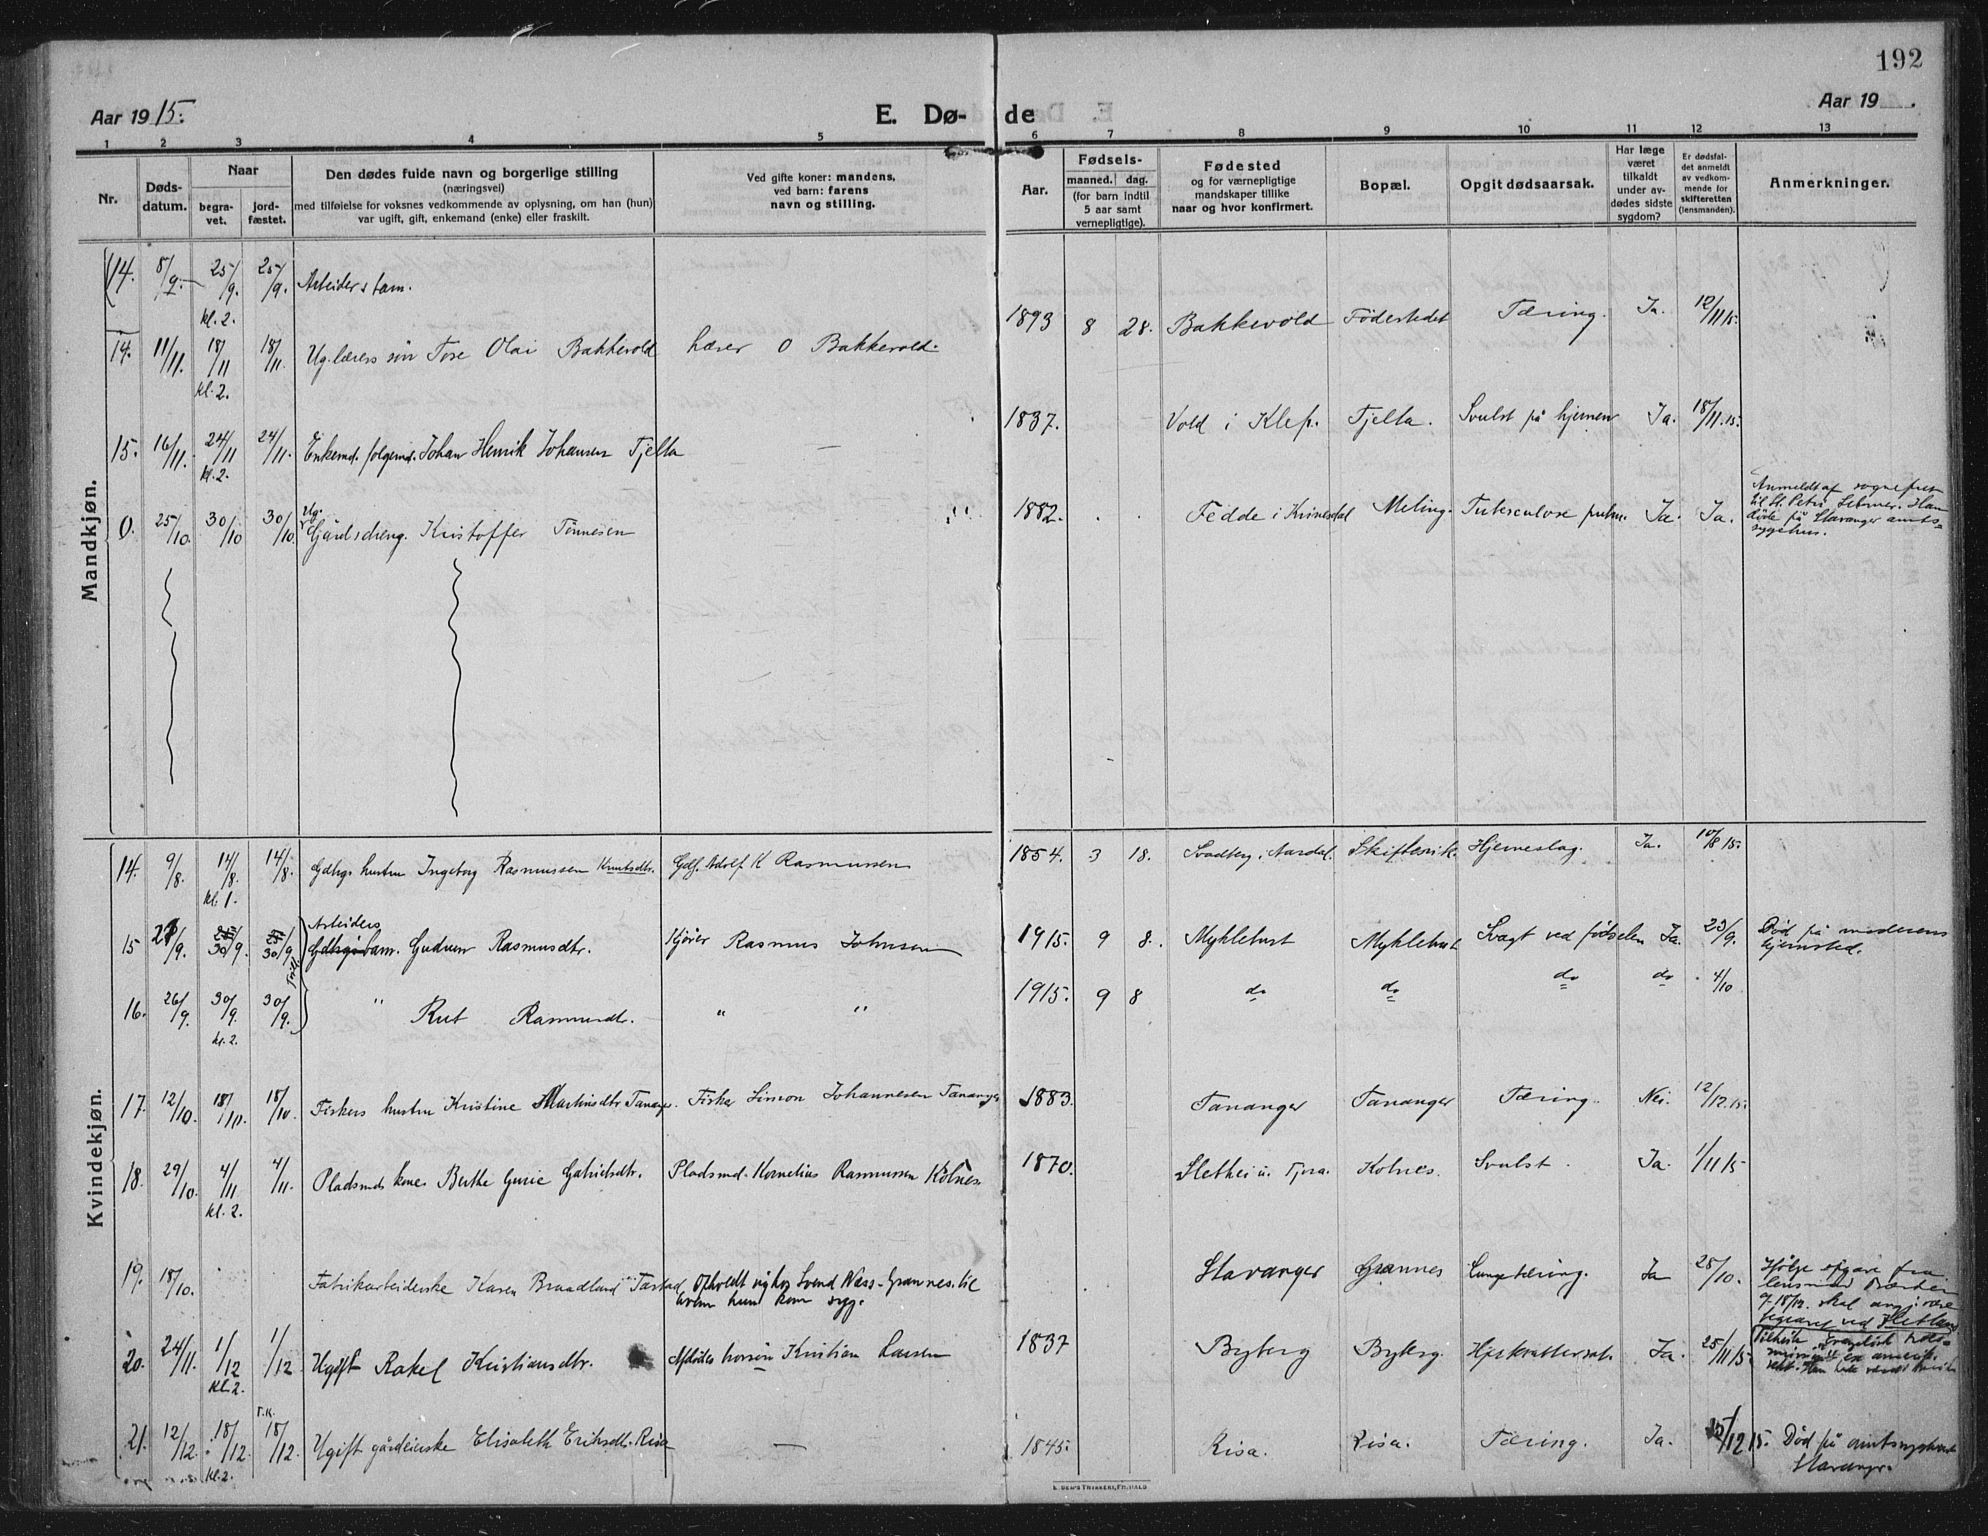 192
Aar 1915.
E. Dø-
de
Aar 19    .
1 2 3 4 5 6 7 8 9 10 11 12 13
Nr.
Døds-
datum.
Naar
begra-
vet.
jord-
fæstet.
Den dødes fulde navn og borgerlige stilling
(næringsvei)
med tilføielse for voksnes vedkommende av oplysning, om han (hun)
var ugift, gift, enkemand (enke) eller fraskilt.
Ved gifte koner: mandens,
ved barn: farens
navn og stilling.
Aar.
Fødsels-
maaned. dag.
(for barn indtil
5 aar samt
vernepligtige).
Fødested
og for værnepligtige
mandskaper tillike
naar og hvor konfirmert.
Bopæl.
Opgit dødsaarsak.
Har læge
været
tilkaldt
under av-
dødes sidste
sygdom?
Er dødsfal-
det anmeldt
av vedkom-
mende for
skifteretten
(lensmanden).
Anmerkninger.
Mandkjøn.
14. 8/9. 25/9. 25/9. Arbeiders barn.
kl. 2.
14. 11/11. 18/11 18/11. Ug. lærers søn Tore Olai Bakkevold Lærer O Bakkevold. 1893 8 28. Bakkevold Fødestedet Tæring. Ja. 12/11 15.
kl. 2.
15. 16/11. 24/11 24/11. Enkemd. folgemd. Johan Henrik Johansen Tjelta — 1837. Vold i Klep. Tjelta. Svulst på hjernen Ja. 18/11. 15.
kl. 2.
0. 25/10 30/10 30/10 Ug. Gårdsdreng. Kristoffer Tønnesen 1882. Fedde i Kvinesdal Meling. Tuberculose pulm. Ja. Ja.
Anmeldt af sogneprest
til St. Petri Han
døde på Stavanger amts-
sygehus.
Kvindekjøn.
14. 9/8. 14/8. 14/8. Gdbrgs hustru Ingeborg Rasmussen Knutsdtr. Gdbr. Adolf K Rasmussen 1854. 3 18. Årdal. Skiftesvik. Hjerneslag. Ja. 10/8 15.
kl. 1.
Arbeiders
15 21/9. 30/9. 30/9 barn. Gudrun Rasmusdtr. Kjører Rasmus Johnsen 1915. 9 8. Myklebust Myklebust Svagt ved fødselen Ja. 23/9. Død på moderens
hjemsted.
Tvill.
16. 26/9. 30/9. 30/9. " Rut Rasmusdtr. " " 1915. 9 8 do do do do 4/10
kl. 2.
17. 12/10. 18/10. 18/10. Fiskers hustru Kristine Martinsdtr Tananger. Fisker Simon Johannesen Tananger 1883. Tananger Tananger Tæring. Nei. 12/12. 15.
18. 29/10. 4/11 4/11. Pladsmds kone Berthe Gurie Gabrielsdtr. Pladsmd. Kornelius Rasmussen Kolnes 1870. Slethei u. Tjora. Kolnes. Svulst. Ja. 1/11 15
kl. 2.
19. 18/10. Fabrikarbeiderske Karen Braadland Tastad Opholdt sig hos Svend Næss-Grannes. til
hvem hun kom syg. Stavanger Grannes Lungetæring. Ja 28/10. Ifølge opgave fra
lensmand
skal
ved Hetland
20. 24/11. 1/12 1/12 Ugift Rakel Kristiansdtr. Afdødes brorsøn Kristian Larsen 1837 Byberg Byberg. Ja. 25/11 15.
kl. 2.
T.K.
21. 12/12. 18/12. 18/12. Ugift gårdeierske Elisabeth Eriksdtr. Risa — 1845. Risa. Risa. Tæring. Ja. 15/12 15. Død på amtssygehuset
Stavanger.
kl. 2.